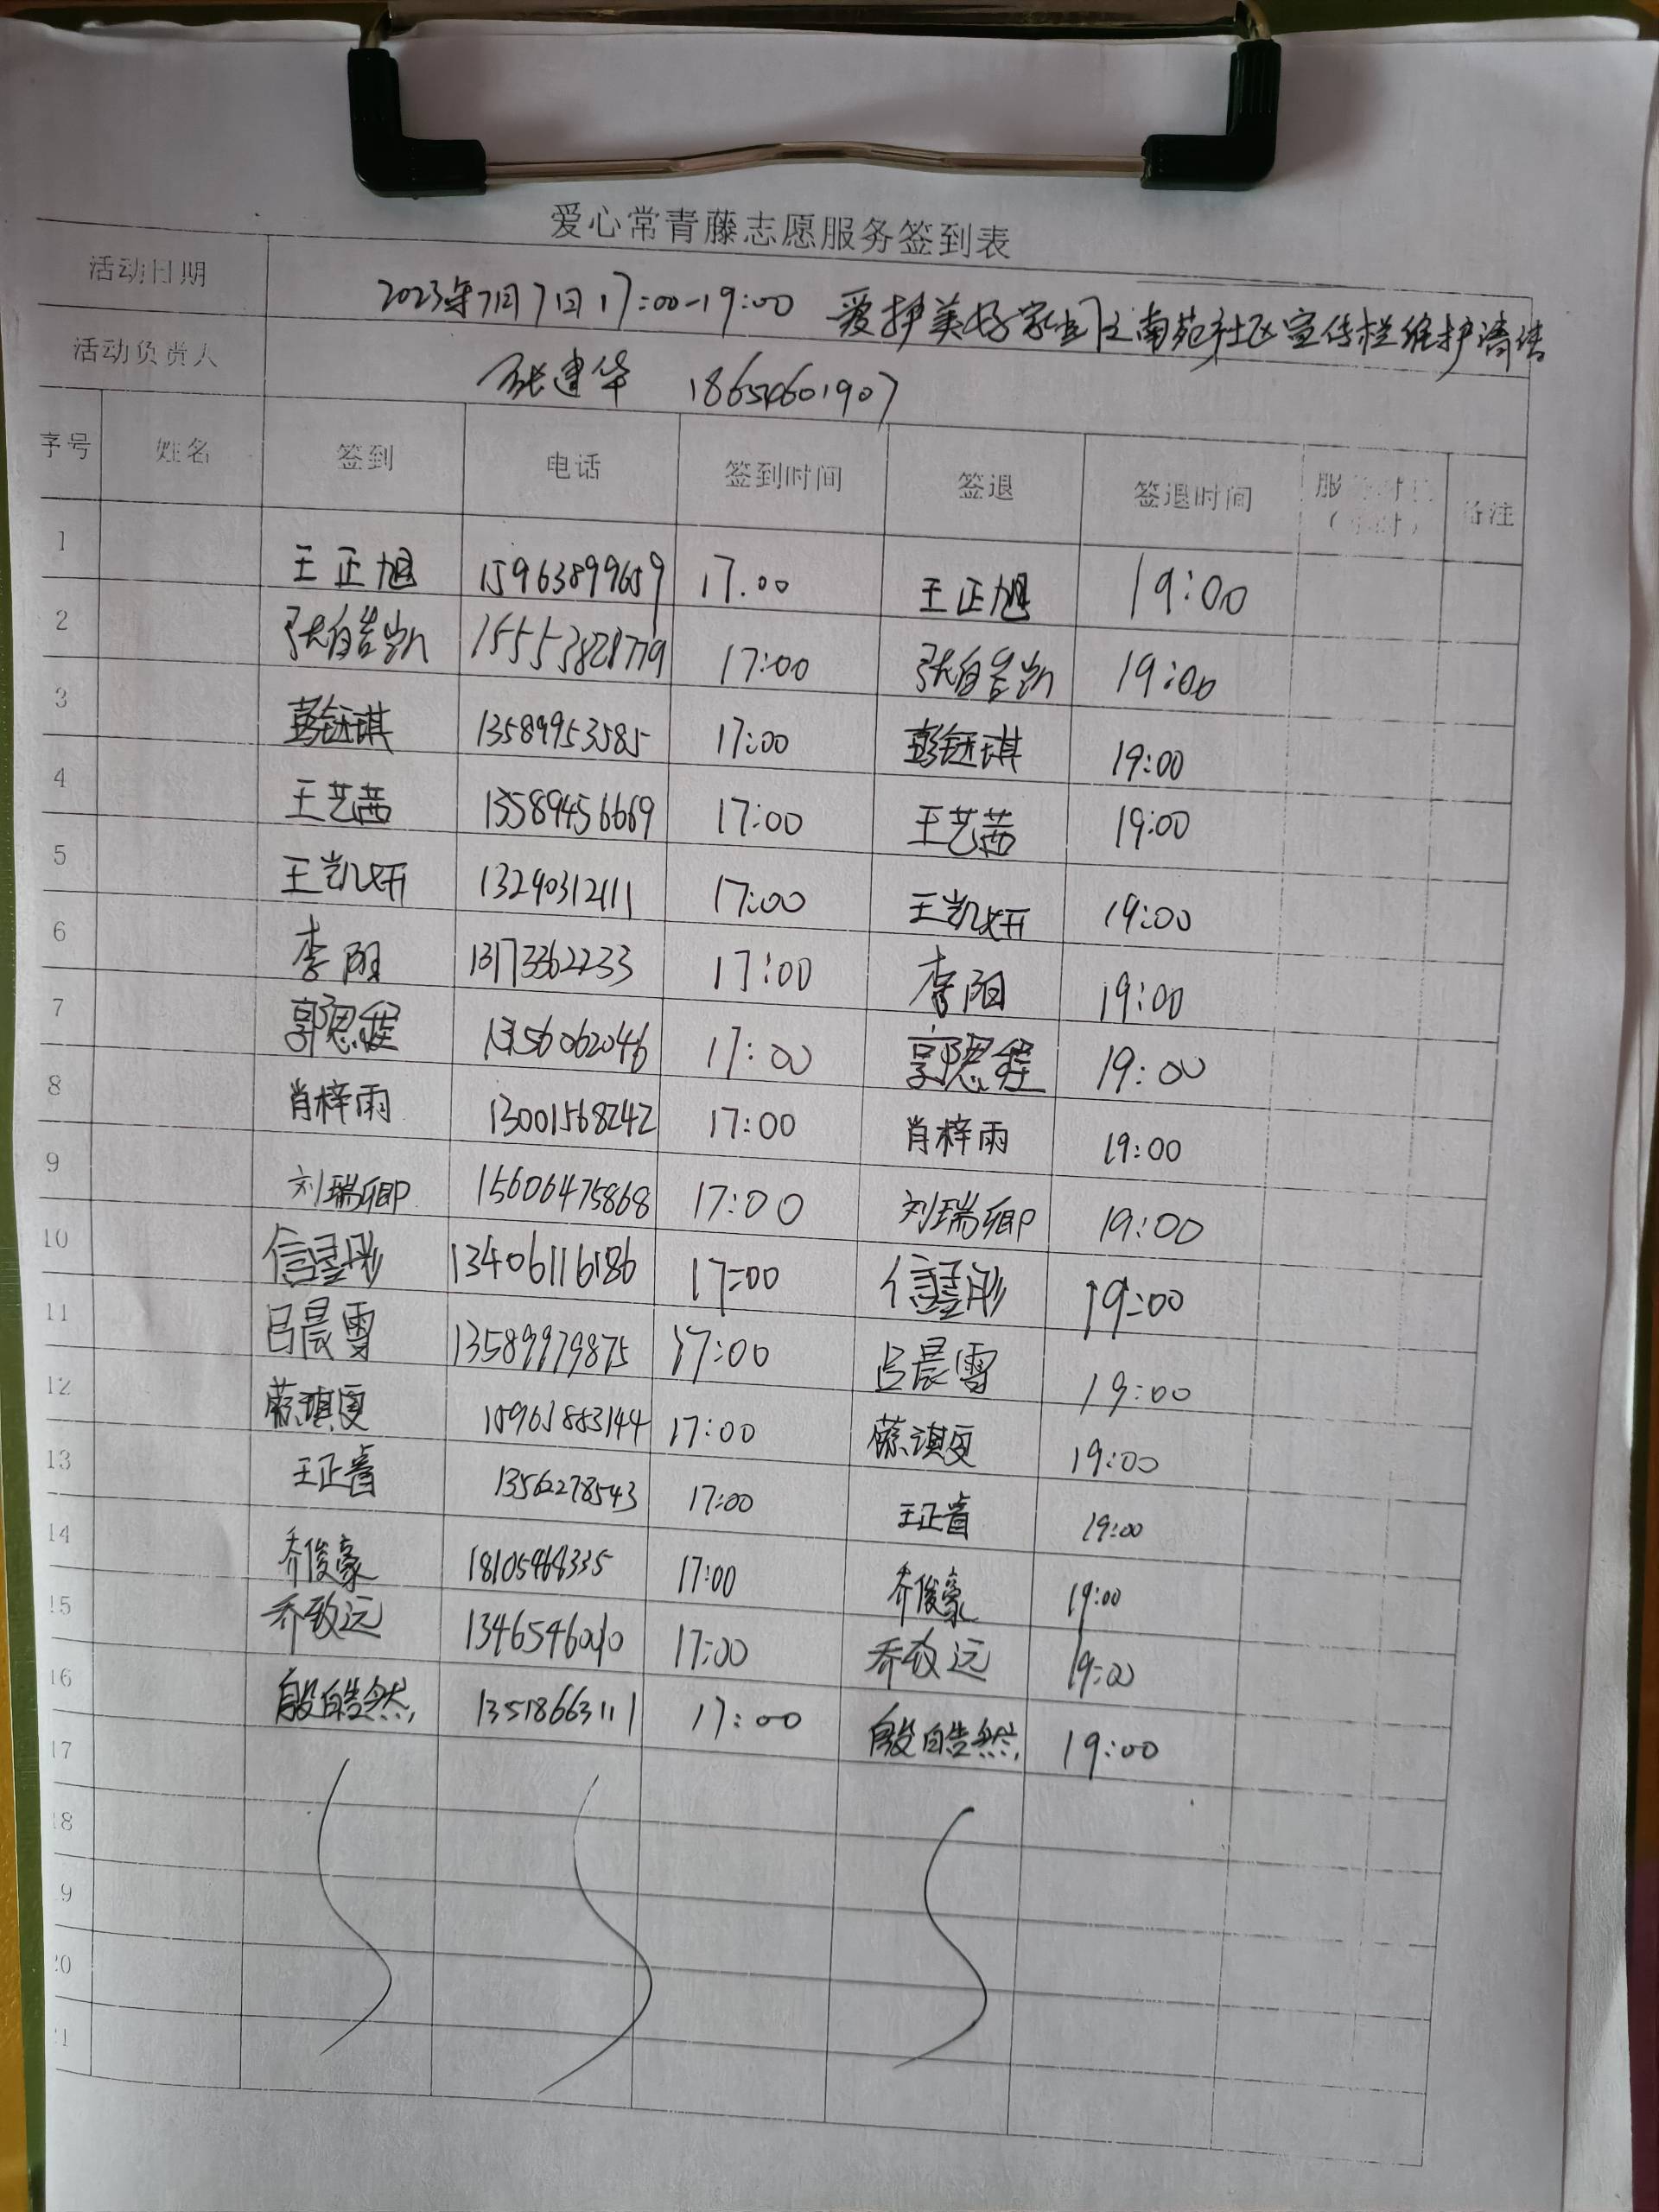 爱心常青藤志愿服务签到表
活动日期 2023年7月7日17:00-19:00 爱护美好家园之南苑社区宣传栏维护清洁
活动负责人 张建华 18654601907
序号 姓名 签到 电话 签到时间 签退 签退时间 服 时 备注
1 王正旭 15963899659 17.00 王正旭 19:00
2 张皓凯 17:00 张皓凯 19:00
3 彭钰琪 13589953585 17:00 彭钰琪 19:00
4 王艺茜 13589456669 17:00 王艺茜 19:00
5 王凯妍 13290312111 17:00 王凯妍 19:00
6 李阳 13173362233 17:00 李阳 19:00
7 郭恩程 13156062046 17:00 郭恩程 19:00
8 肖梓雨 13001568242 17:00 肖梓雨 19:00
9 刘瑞卿 15606475868 17:00 刘瑞卿 19:00
10 信星彤 13406116186 17:00 信星彤 19:00
11 吕晨雪 13589979875 17:00 吕晨雪 19:00
12 17:00 19:00
13 王正睿 13562278543 17:00 王正睿 19:00
14 乔俊豪 17:00 乔俊豪 19:00
15 乔致远 17:00 乔致远 19:00
16 殷皓然 13518663111 17:00 殷皓然 19:00
17
18
9
20